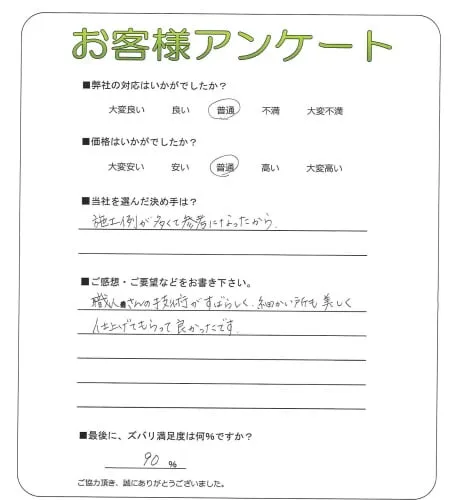 お客様アンケート
■弊社の対応はいかがでしたか？
大変良い 良い 普通 不満 大変不満
■価格はいかがでしたか？
大変安い 安い 普通 高い 大変高い
■当社を選んだ決め手は？
施工例が多くて参考になったから.
■ご感想・ご要望などをお書き下さい。
職人さんの技術がすばらしく、細かい所も美しく
仕上げてもらって良かったです.
■最後に、ズバリ満足度は何％ですか？
90 %
ご協力頂き、誠にありがとうございました。